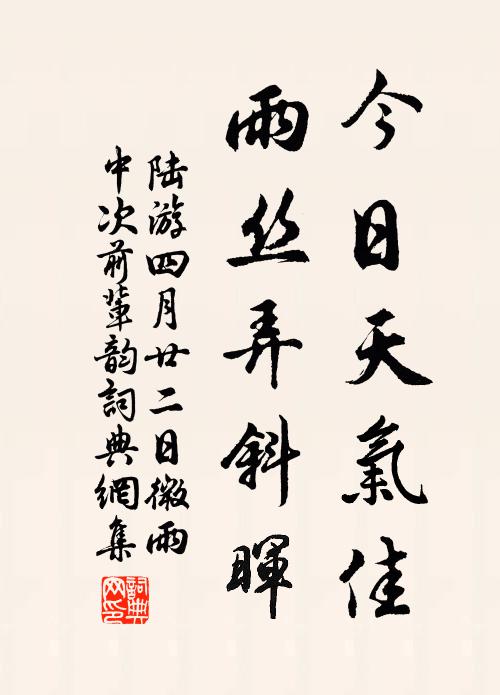 今日天氣佳
雨丝弄斜暉
陆游四月廿二日微雨
中次前輩韵詞典網集
詞典
网印